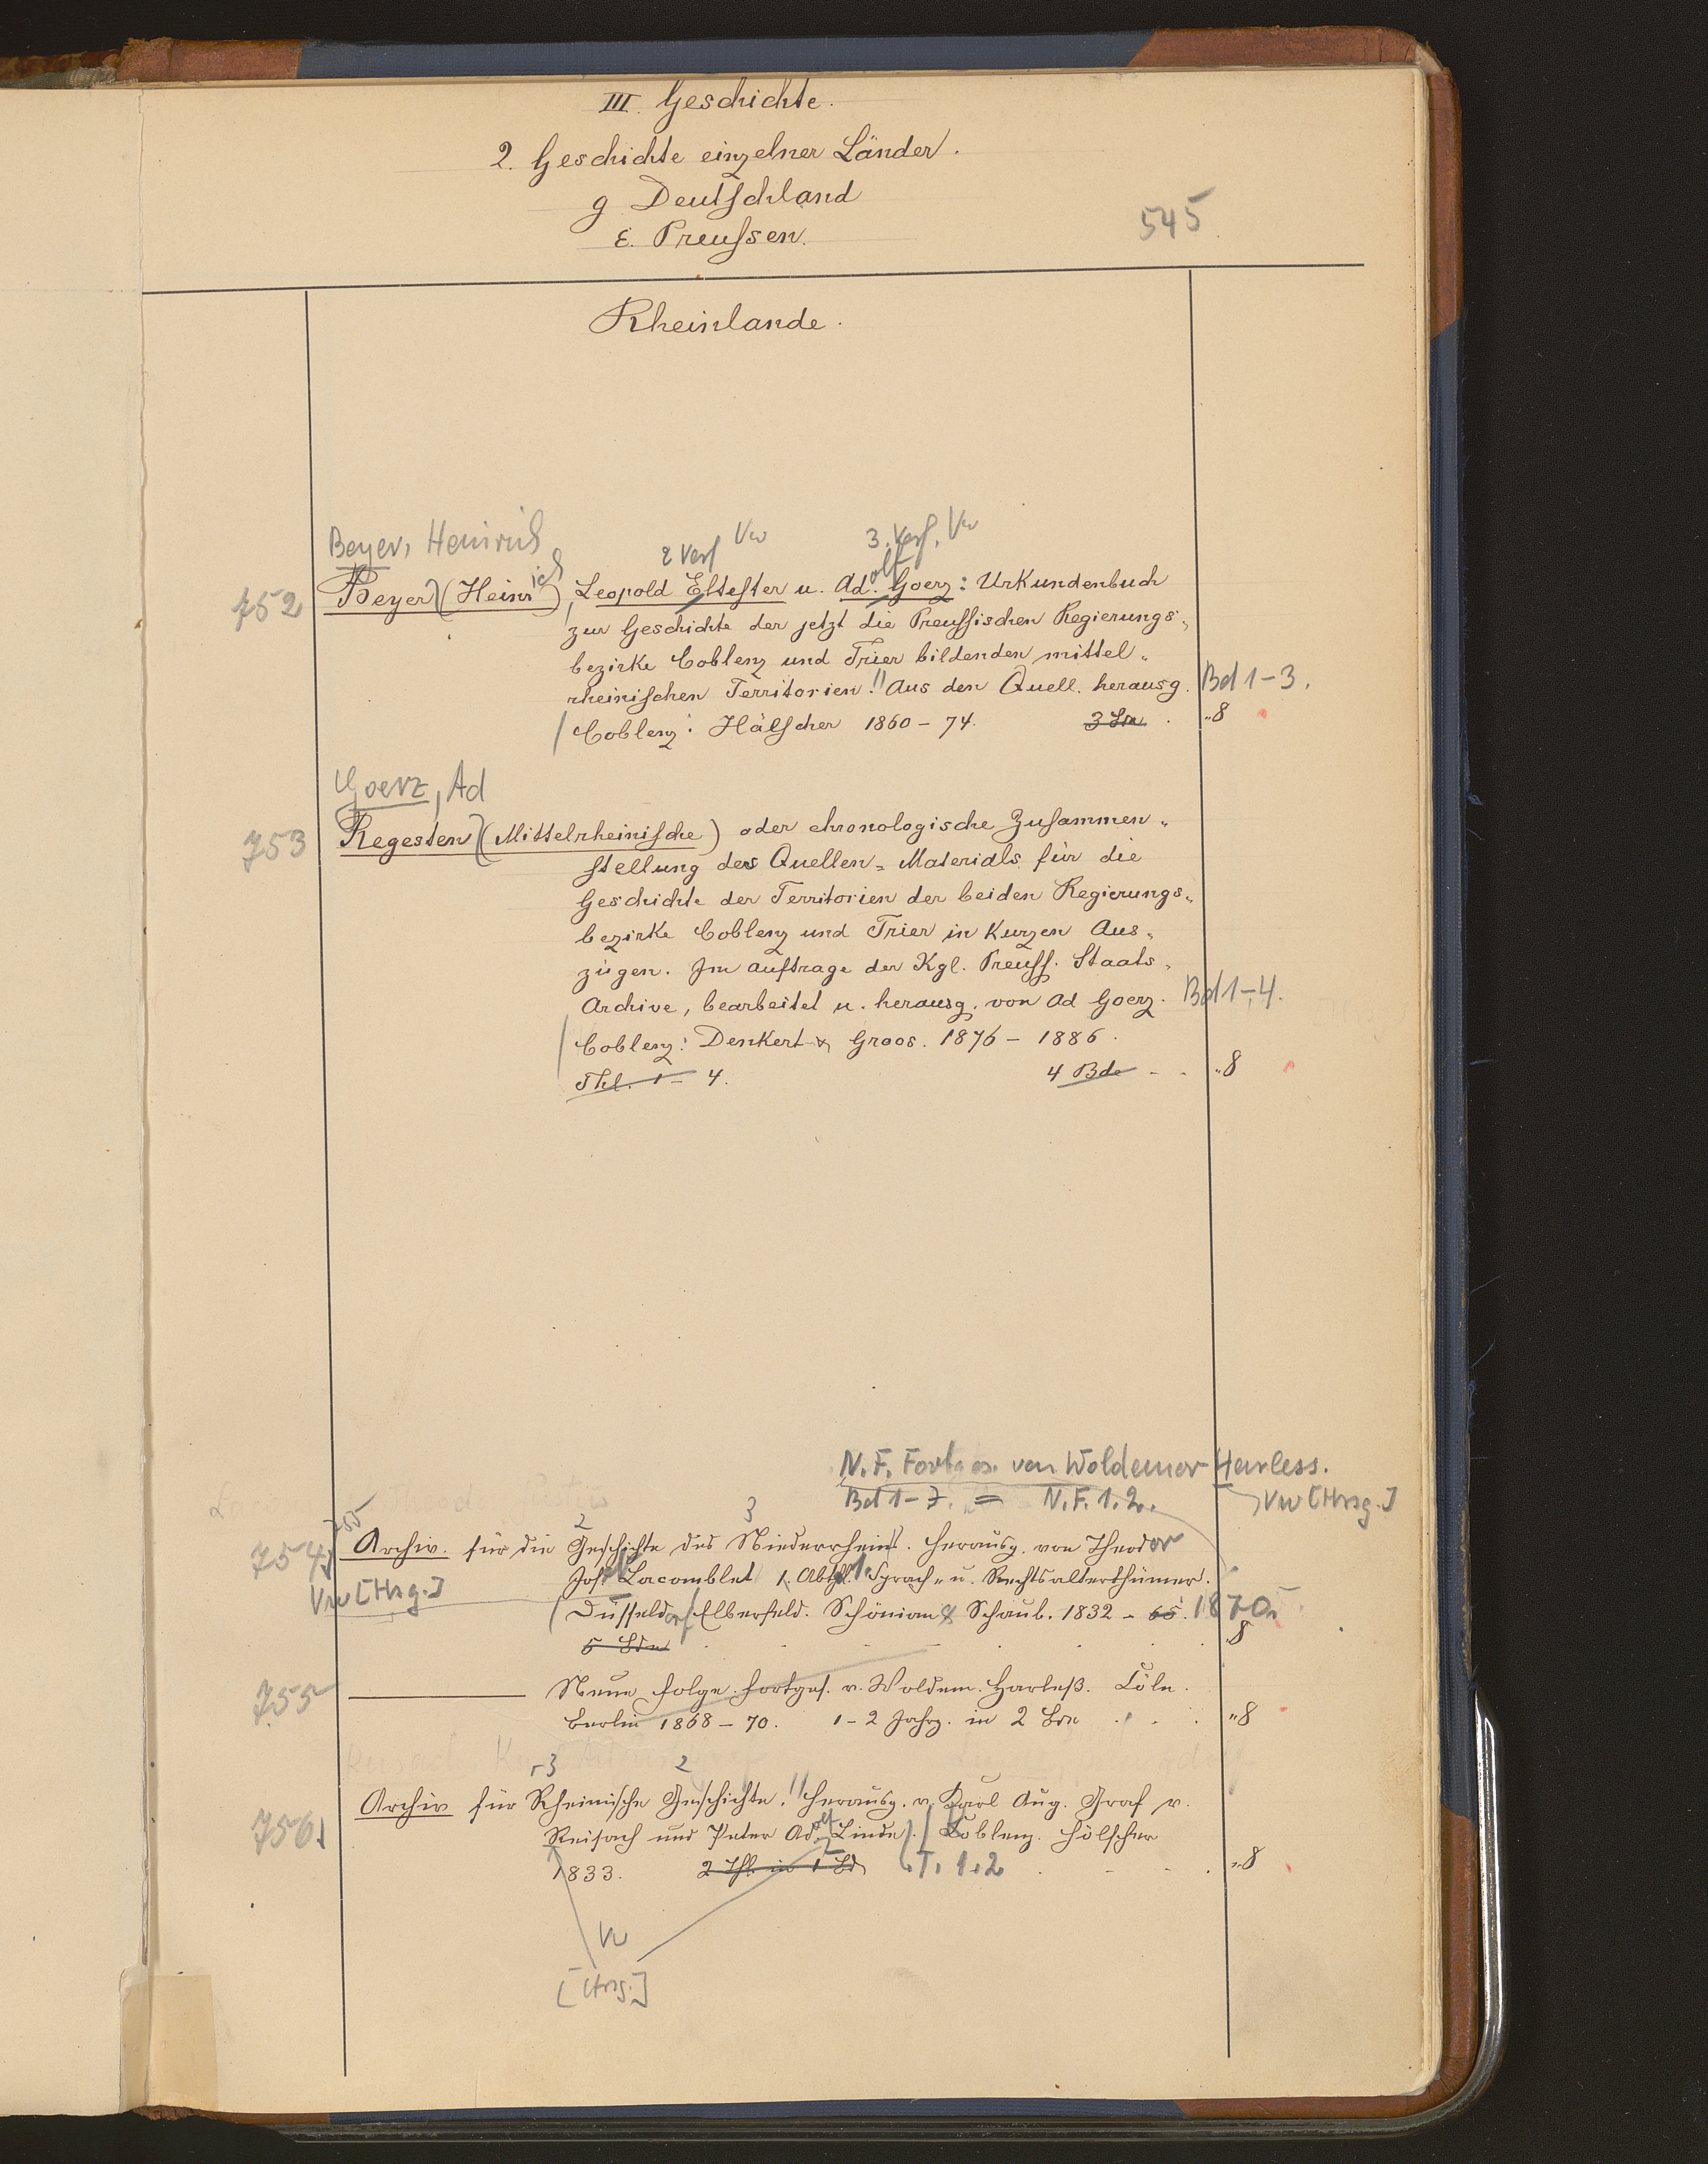 III. Geschichte.
2. Geschichte einzelner Länder.
g Deutschland
ε. Preussen.
545
Rheinlande.
Beyer, Heinrich
2 Verf Vw
3. Verf. Vw
752 Beyer (Heinrich), Leopold Eltester u. Adolf Goerz: Urkundenbuch
zur Geschichte der jetzt die Preussischen Regierungs-
bezirke Coblenz und Trier bildenden mittel-
rheinischen Territorien. Aus den Quell. herausg. Bd 1-3.
Coblenz: Hölscher 1860-74. 3 Bde. 8
Goerz, Ad
753 Regesten (Mittelrheinische) oder chronologische Zusammen-
stellung des Quellen-Materials für die
Geschichte der Territorien der beiden Regierungs-
bezirke Coblenz und Trier in kurzen Aus-
zügen. Im Auftrage der Kgl. Preuss. Staats-
Archive, bearbeitet u. herausg. von Ad Goerz. Bd 1-4.
Coblenz: Denkert & Groos. 1876-1886.
Thl. 1-4. 4 Bde 8
N. F. Fortges. von Woldemar Harless.
Bd 1-7. = N. F. 1. 2. Vw [Hrsg.]
755
2 3
754 Archiv für die Geschichte des Niederrheins. Herausg. von Theodor
Vw [Hrsg.] Jos. Lacomblet 1. Abthl. Sprach- u. Rechtsalterthümer.
Düsseldorf Elberfeld. Schönian & Schaub. 1832-65. 1870.
5 Bde 8
755 Neue Folge. Fortges. v. Woldem. Harleß. Cöln.
Berlin 1868-70. 1-2 Jahrg. in 2 Bde 8
3 2
756. Archiv für Rheinische Geschichte. Herausg. v. Karl Aug. Graf v.
Reisach und Peter Adolf Linde. Coblenz. Hölscher
1833. 2 Thl. in 1 Bd T. 1. 2 8
Vw
[Hrsg.]